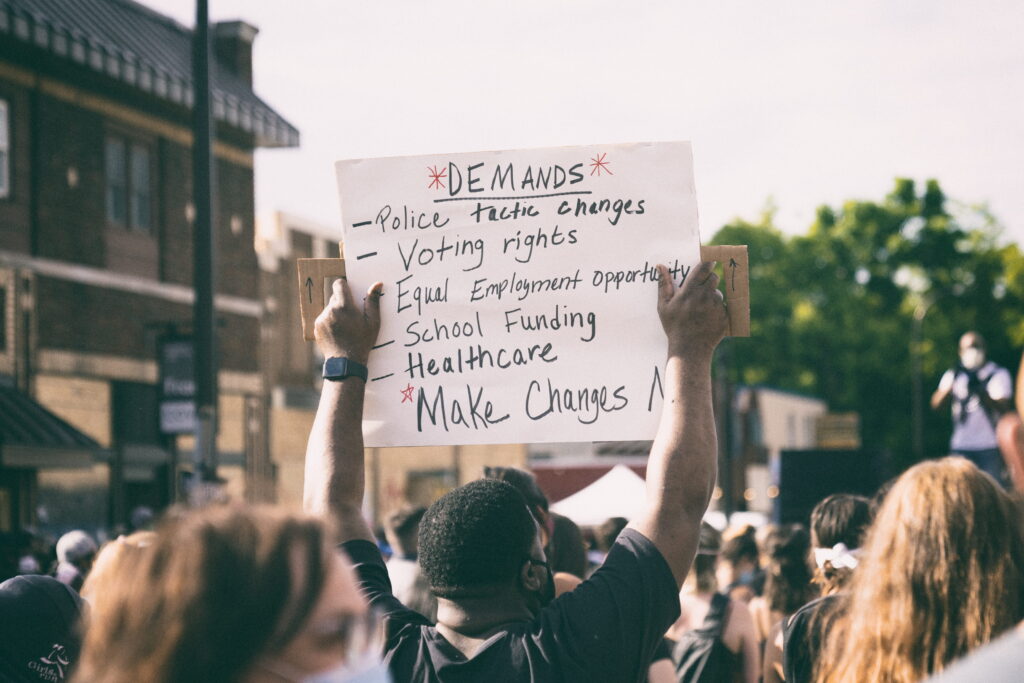 *DEMANDS*
- Police tactic changes
- Voting rights
- Equal Employment opportunity
- School Funding
- Healthcare
* Make Changes N
Girls